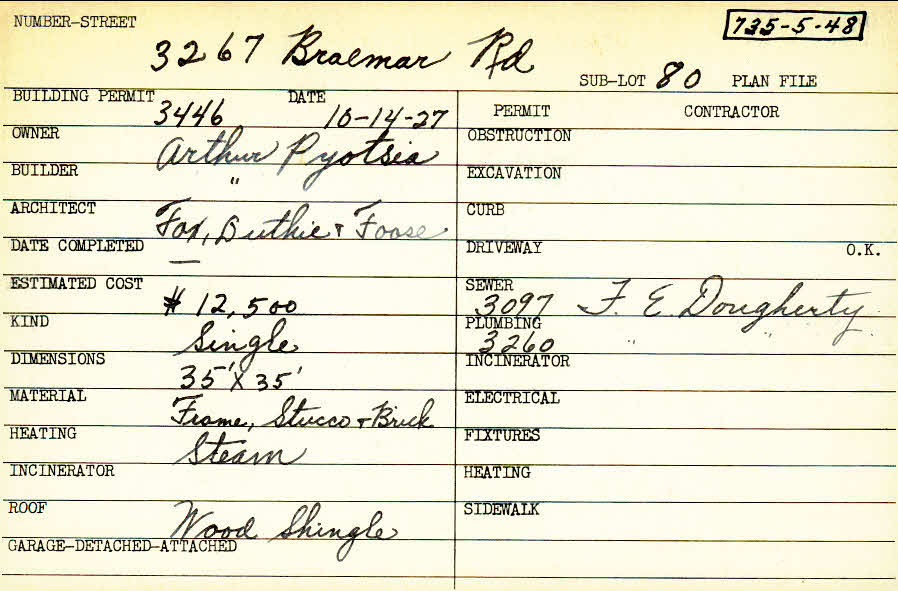 NUMBER-STREET
735-5-48
3267 Braemar Rd
SUB-LOT 80 PLAN FILE
BUILDING PERMIT 3446 DATE 10-14-27
PERMIT CONTRACTOR
OWNER Arthur Pyotsia
OBSTRUCTION
BUILDER "
EXCAVATION
ARCHITECT Fox, Duthie & Foose
CURB
DATE COMPLETED —
DRIVEWAY O.K.
ESTIMATED COST $ 12,500
SEWER 3097 F. E. Dougherty
KIND Single
PLUMBING 3260 " "
DIMENSIONS 35' X 35'
INCINERATOR
MATERIAL Frame, Stucco & Brick
ELECTRICAL
HEATING Steam
FIXTURES
INCINERATOR
HEATING
ROOF Wood Shingle
SIDEWALK
GARAGE-DETACHED-ATTACHED